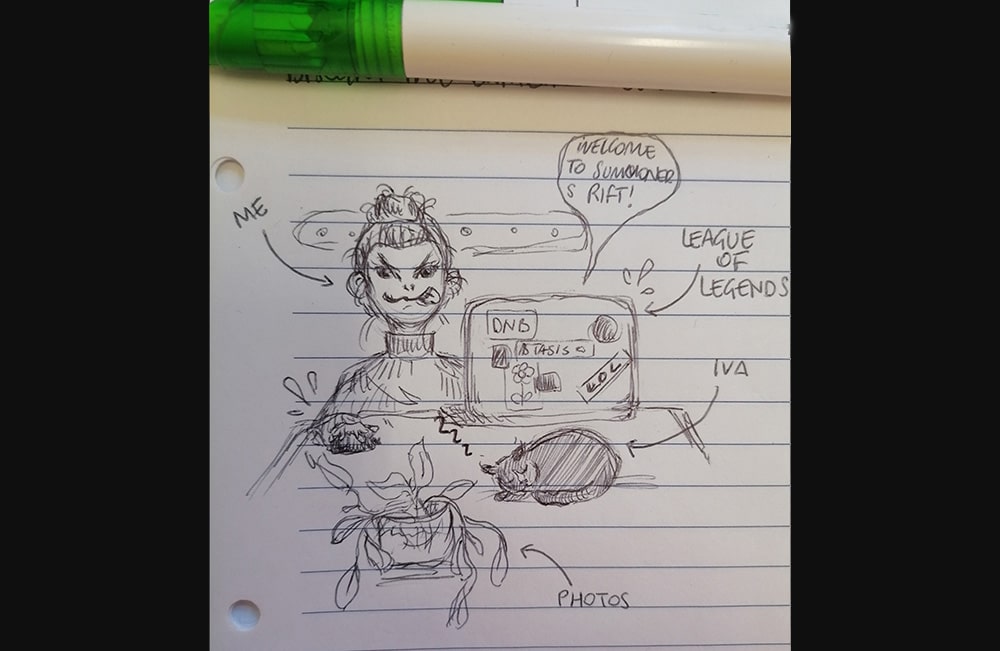 WELCOME
TO SUMMONER
S RIFT!
ME
LEAGUE
OF
LEGENDS
DNB
LOL
IVA
ZZZ
PHOTOS